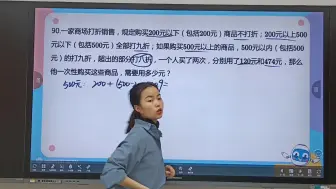 90.一家商场打折销售，规定购买200元以下（包括200元）商品不打折；200元以上500
元以下（包括500元）全部打九折；如果购买500元以上的商品，500元以内（包括500
元）的打九折，超出的部分打八折，一个人买了两次，分别用了120元和474元，那么
他一次性购买这些商品，需要用多少元？
500元